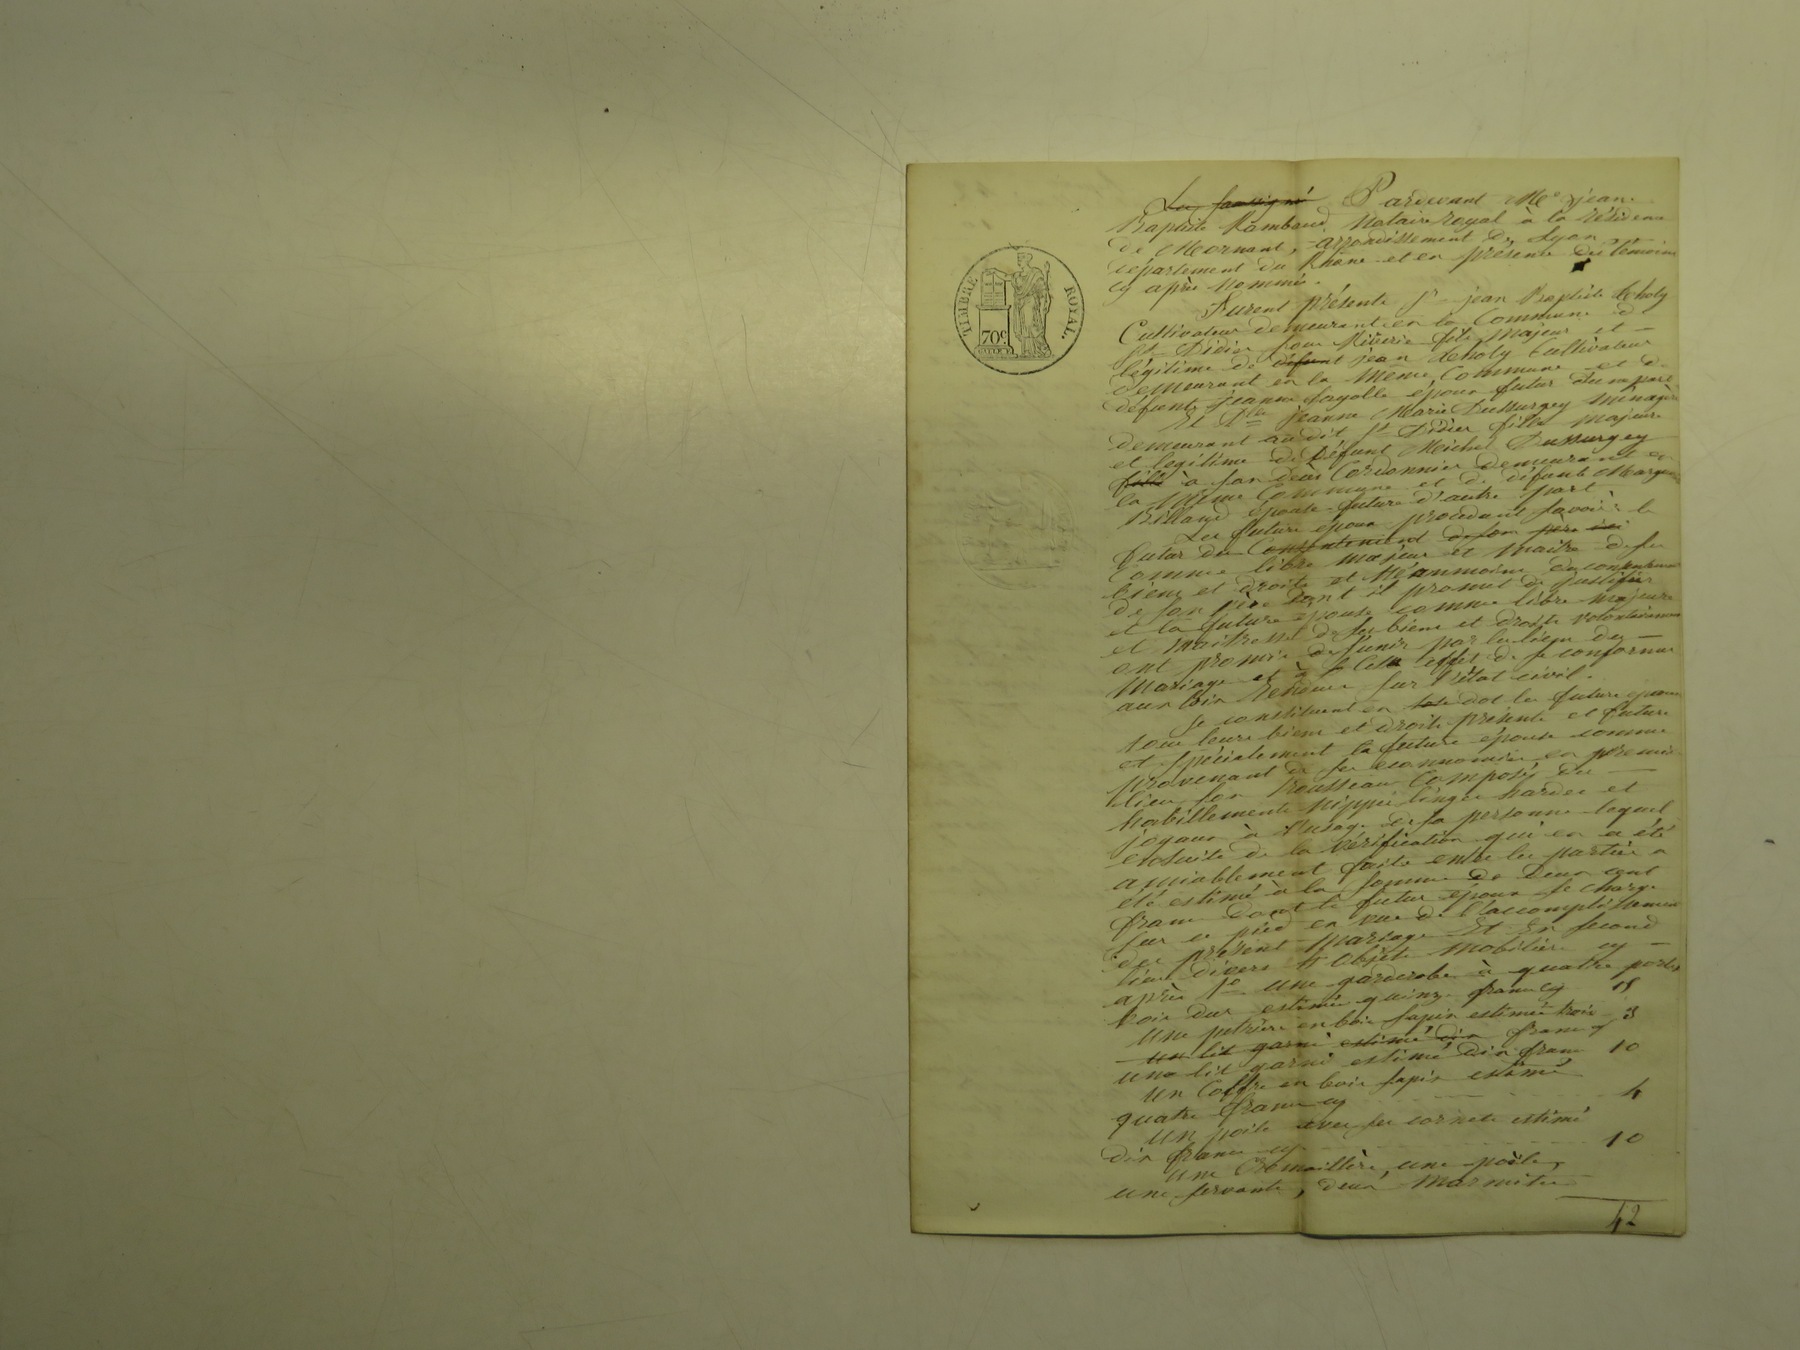 TIMBRE ROYAL.
70c
Les soussigné Pardevant Me jean
Baptiste Rambaud Notaire royal à la résidence
de Mornant, arrondissement de Lyon
département du Rhône et en présence des témoins
cy après nommés.
Furent présents Sr jean Baptiste
Cultivateur demeurant en la Commune de
St Didier sous Riverie fils majeur et
légitime de défunt jean Cultivateur
demeurant en la même Commune et de
défunte jeanne fayolle époux futur d'une part
Et Dlle jeanne Marie Dussurgey ménagère
demeurant au dit St Didier fille majeure
et légitime de défunt Michel Dussurgey
à son décès Cordonnier demeurant en
la même Commune et de défunte
épouse future d'autre part
Les futurs époux procédant savoir : le
futur du Consentement de son père
comme libre majeur et maitre de ses
biens et droits et Néanmoins du consentement
de son père dont il promet de justifier
et la future épouse comme libre majeure
et maitresse de ses biens et droits volontairement
ont promis de s'unir par les liens du
Mariage et à cet effet de se conformer
aux lois rendues sur l'état civil.
Se constituent en dot les futurs époux
tous leurs biens et droits présents et futurs
et spécialement la future épouse comme
provenant de ses économies en premier
lieu son trousseau Composé de
habillements nippes linges hardes et
joyaux à l'usage de sa personne lequel
ensuite de la vérification qui en a été
amiablement faite entre les parties a
été estimé à la somme de Deux cent
francs dont le futur époux se charge
sur ce pied en vue de l'accomplissement
du présent Mariage Et En second
lieu divers Objets mobiliers cy
après 1° une garderobe à quatre portes
bois dur estimée quinze francs cy 15
Une en bois sapin estimée trois 3
un lit garni estimé dix francs cy
un lit garni estimé dix francs 10
Un Coffre en bois sapin estimé
quatre francs cy 4
Un poile avec ses cornets estimé
dix francs cy 10
une Crémaillère, une poële,
une servante, deux Marmites
42